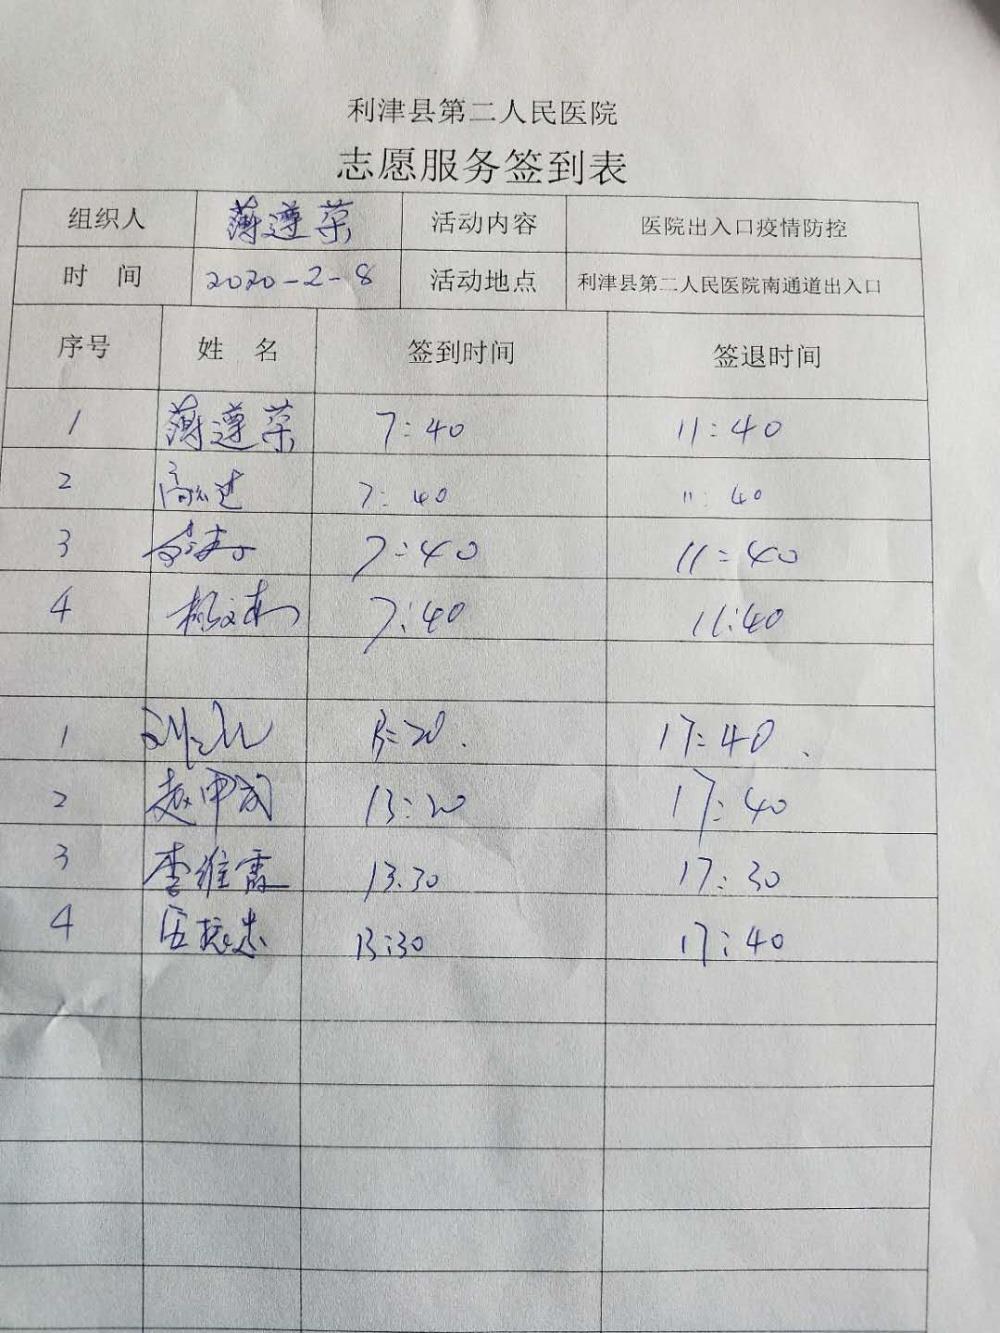 利津县第二人民医院
志愿服务签到表
组织人 薄遵荣 活动内容 医院出入口疫情防控
时 间 2020-2-8 活动地点 利津县第二人民医院南通道出入口
序号 姓 名 签到时间 签退时间
1 薄遵荣 7:40 11:40
2 7:40 11:40
3 7:40 11:40
4 7:40 11:40
1 13:20 17:40
2 赵中成 13:20 17:40
3 李维霞 13.30 17:30
4 13:30 17:40